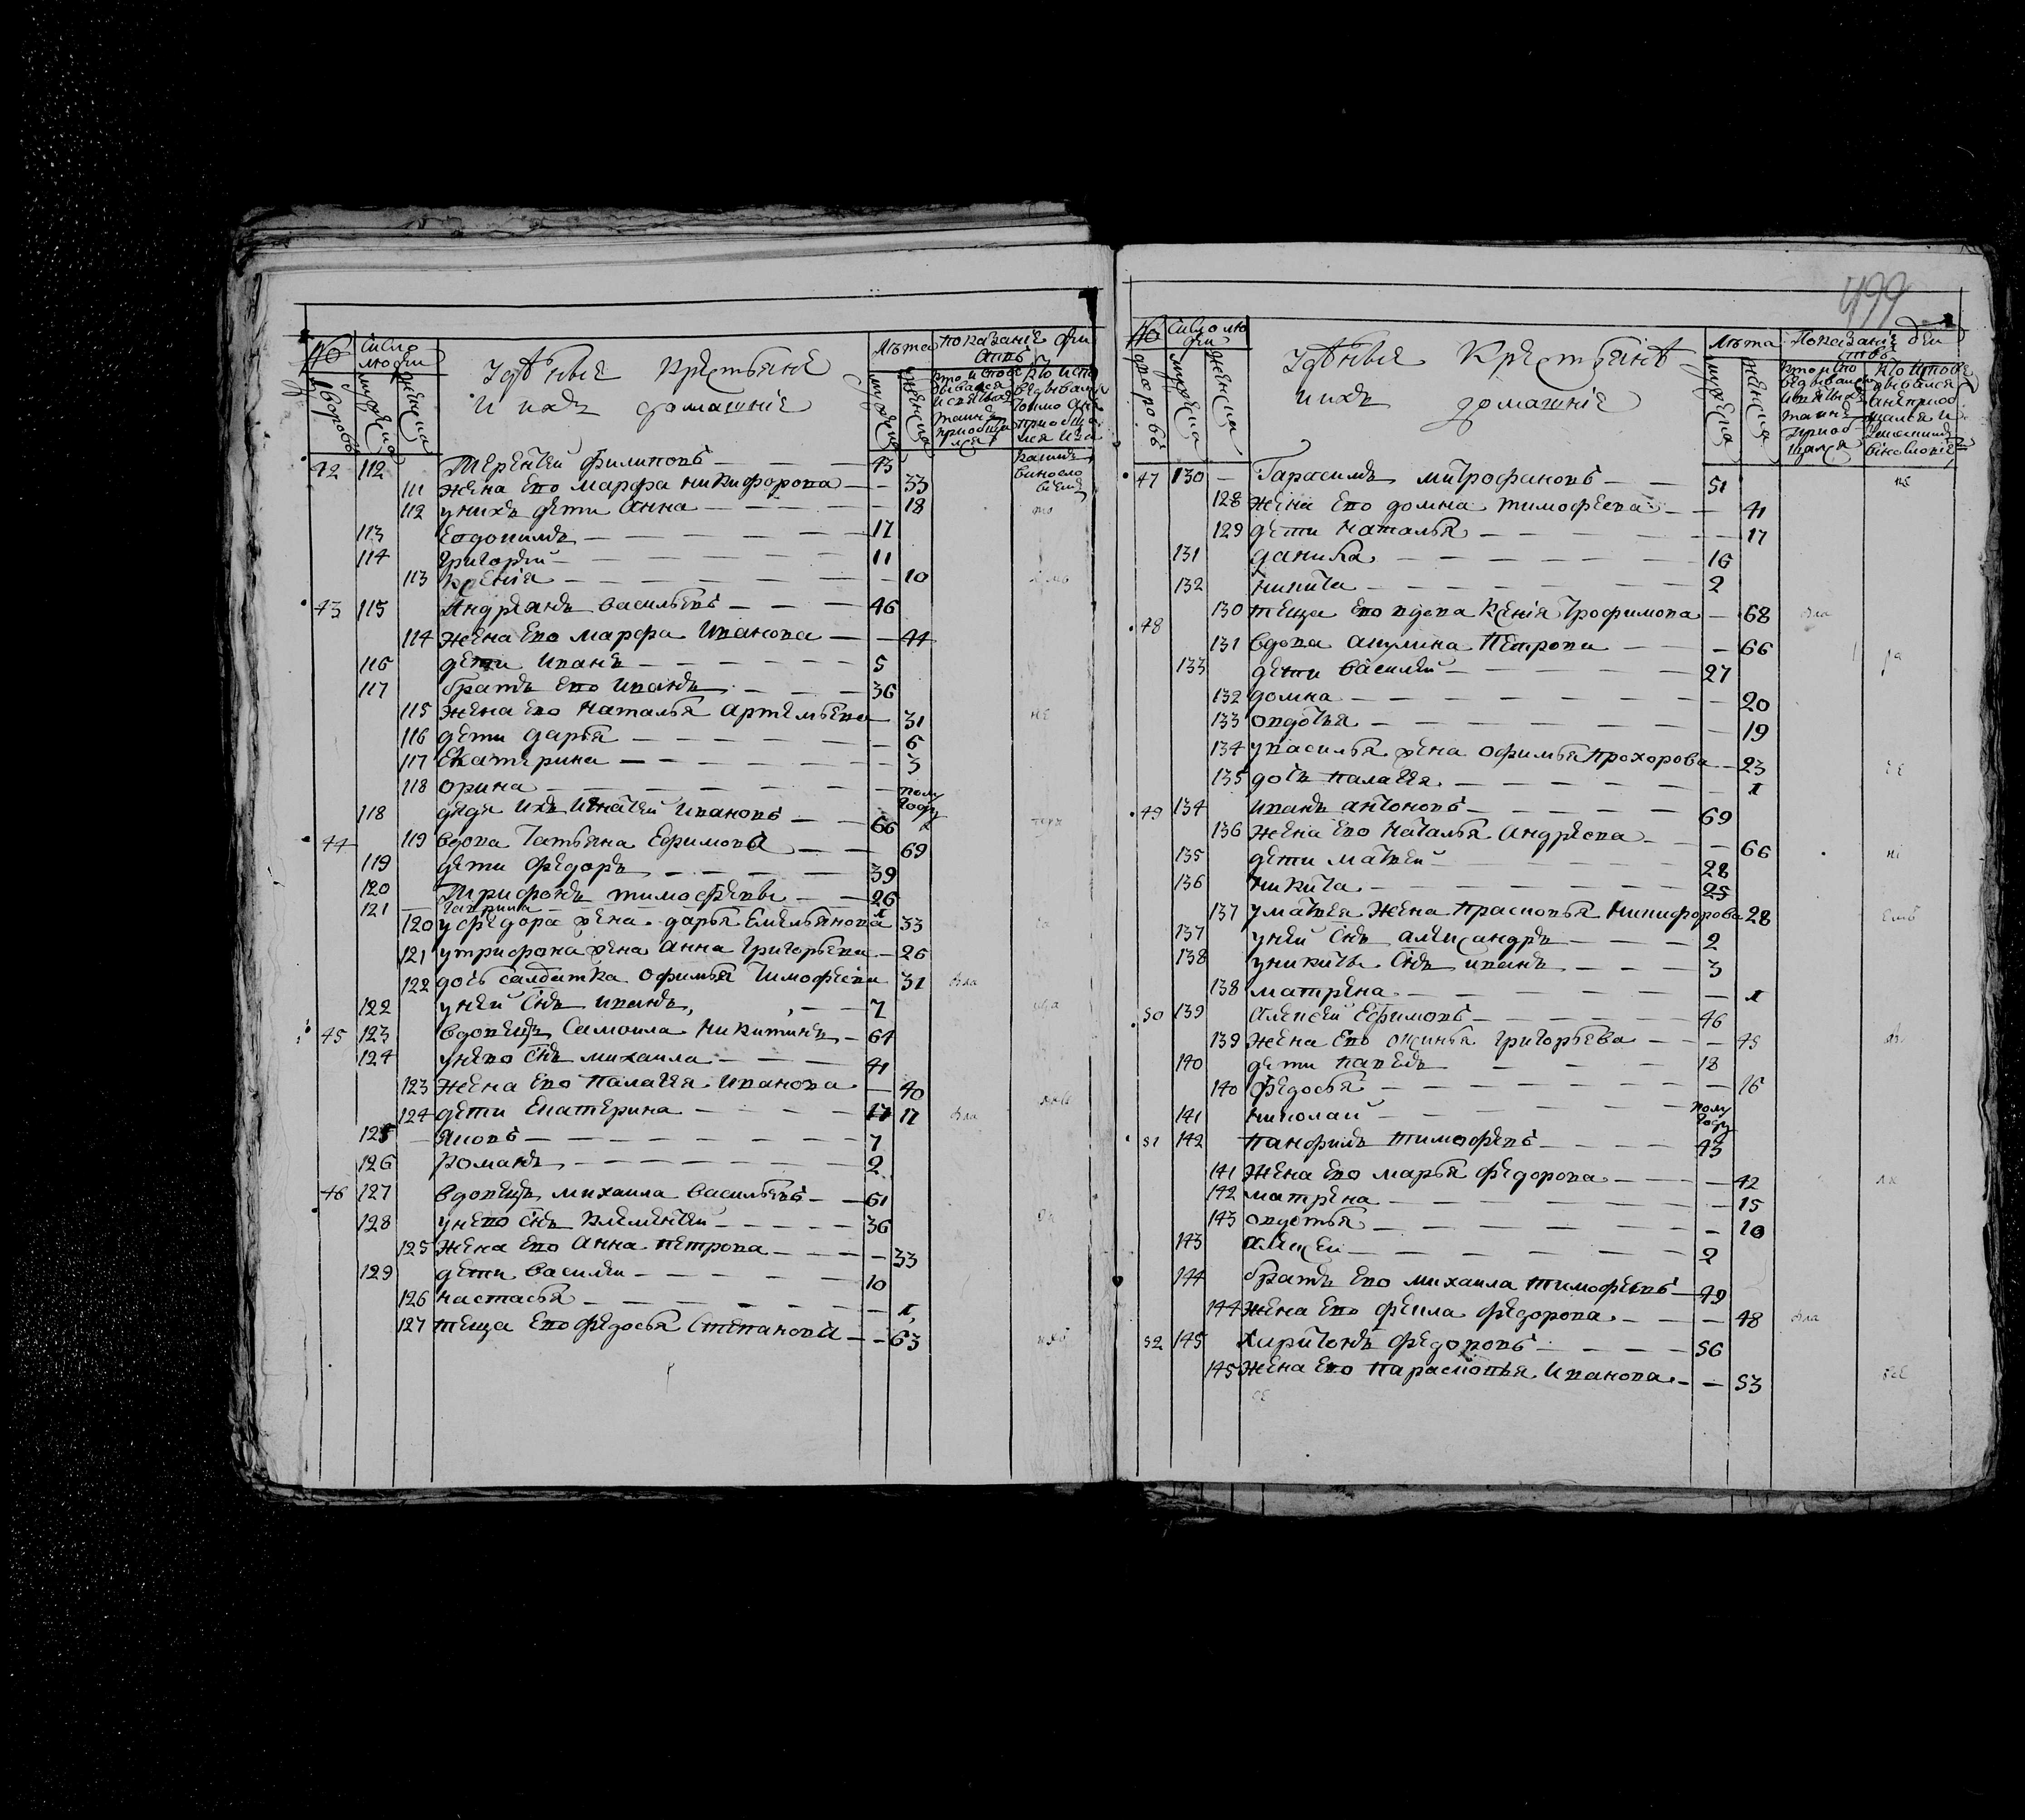 499
№ Число людей Лѣта показаніе дѣй ствъ
удѣлныя крестьяне
и ихъ домашніе
дворовъ мужеска женска мужеска женска
42 112 Терентеи филиповъ — — — 43
111 жена ево марфа никифорова — — 33
112 унихъ дети анна — — — 18
113 Евдокимъ — — — 17
114 григореи — — — 11
113 ксенія — — — 10
43 115 Андреянъ васильевъ — — — 46
114 жена ево марфа иванова — — 44
116 дети иванъ — — — 5
117 братъ ево иванъ — — — 36
115 жена ево наталья артемьева — 31
116 дети дарья — — — 6
117 екатерина — — — 3
118 орина — — — полу году
118 дядя ихъ игнатеи ивановъ — — 66
44 119 вдова татьяна ефимова — — 69
119 дети федоръ — — — 39
120 трифонъ тимофеевы — — 26
121 гаврила — 1
120 уфедора жена дарья емельянова 33
121 утрифона жена анна григорьева — 26
122 дочь салдатка офимья тимофеева 31
122 унеи снъ иванъ, — — 7
45 123 вдовецъ самоила никитинъ — 64
124 унево снъ михаила — — — 41
123 жена ево палагея иванова — 40
124 дети екатерина — — — 17 17
125 яковъ — — — 7
126 романъ — — — 2
46 127 вдовецъ михаила васильевъ — — 61
128 унево снъ клементеи — — — 36
125 жена ево анна петрова — — — 33
129 дети василеи — — — 10
126 настасья — — — 1
127 теща ево федосья степанова — — 63
№ Число людей Лѣта Показаніе дѣй ствъ
удѣлныя крестьянѣ
и ихъ домашніе
дворовъ мужеска женска мужеска женска
47 130 — Гарасимъ митрофановъ — — 51
128 жена ево домна тимофеева — — 41
129 дети наталья — — — 17
131 данила — — — 16
132 никита — — — 2
130 теща ево вдова ксенія трофимова — 68
48 131 вдова акулина петрова — — — 66
133 дети василеи — — — 27
132 домна — — — 20
133 овдотья — — — 19
134 увасилья жена офимья прохорова — 23
135 дочь палагея — — — 1
49 134 иванъ антоновъ — — — 69
136 жена ево наталья андреева — — — 66
135 дети матвеи — — — 28
136 никита — — — 25
137 уматвея жена прасковья никифорова 28
137 унеи снъ александръ — — — 2
138 уникиты снъ иванъ — — — 3
138 матрена — — — 1
50 139 алексеи ефимовъ — — — 46
139 жена ево оксинья григорьева — — — 45
140 дети павелъ — — — 18
140 федосья — — — 16
141 николаи — — — полу году
51 142 панфилъ тимофеевъ — — — 43
141 жена ево марья федорова — — — 42
142 матрена — — — 15
143 овдотья — — — 10
143 алексеи — — — 2
144 братъ ево михаила тимофеевъ — 49
144 жена ево фекла федорова — — — 48
52 145 харитонъ федоровъ — — — 56
145 жена ево парасковья иванова — — 53